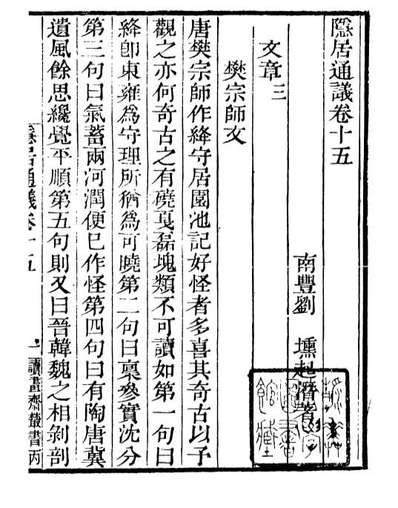 隱居通議卷十五
南豐劉 壎起潛著
文章三
樊宗師文
唐樊宗師作絳守居園池記好怪者多喜其奇古以予
觀之亦何奇古之有磽戛磊塊類不可讀如第一句曰
絳即東雍為守理所猶為可曉第二句曰稟參實沈分
第三句曰氣蓄兩河潤便已作怪第四句曰有陶唐冀
遺風餘思纔覺平順第五句則又曰晉韓魏之相剝剖
隱居通議卷十五 一 讀畫齋叢書丙